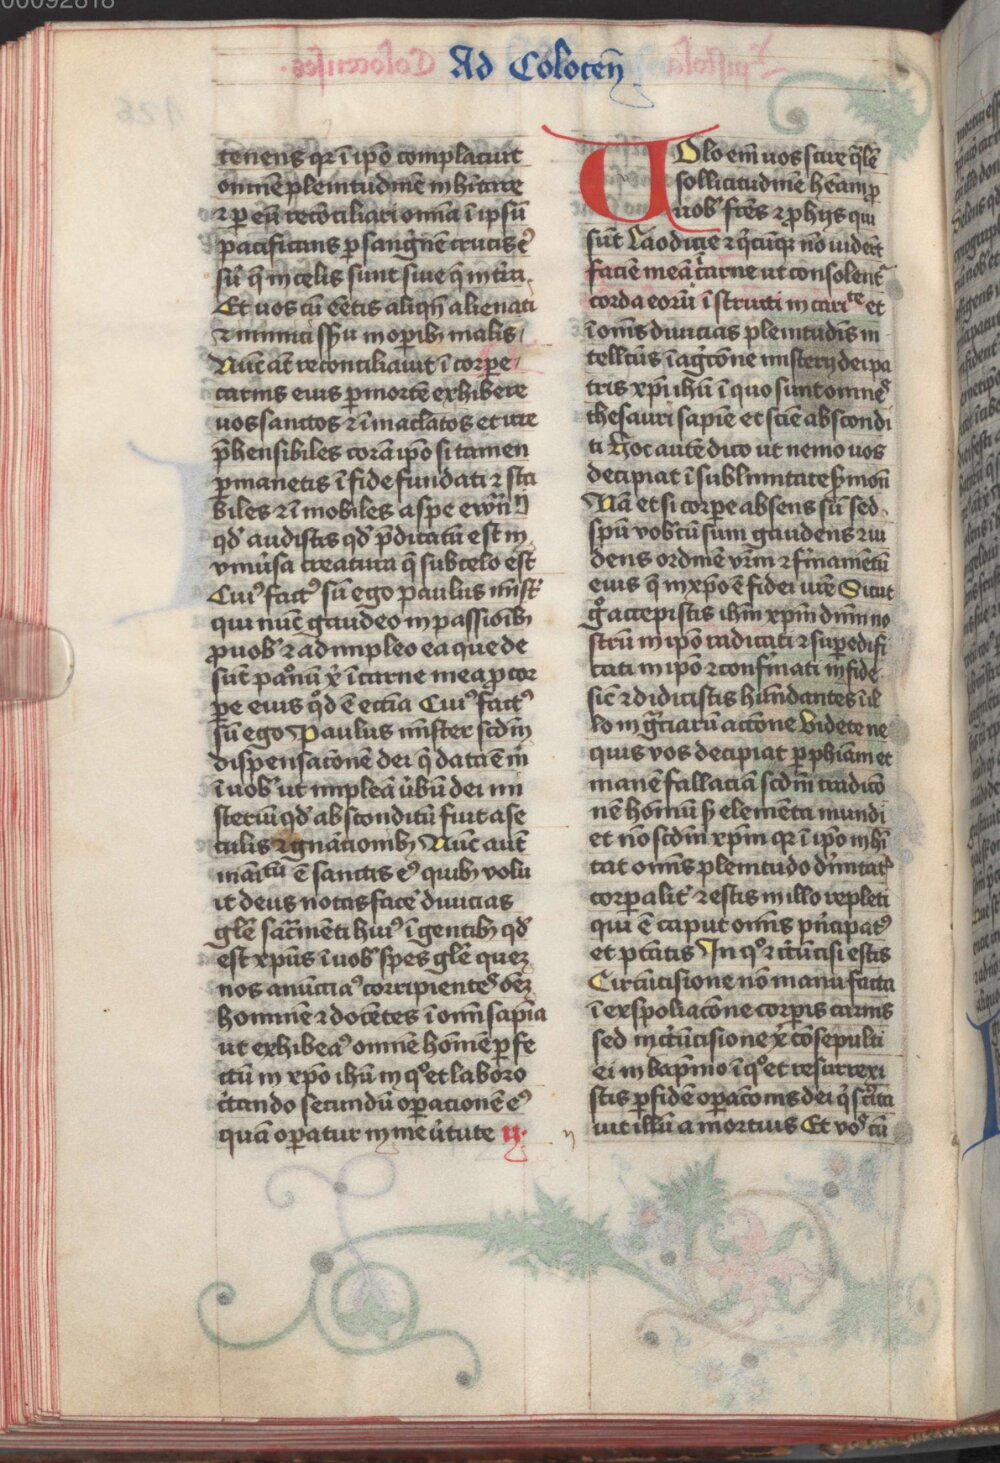 00092818
Ad Colocen̄
tenens qr ī ip̄o complacuit
omnē plenitudinē inhītare
⁊ ꝑ eū recōciliari om̄ia ī ip̄sū
pacificans ꝑ sanguinē crucis eꝰ
siū q̄ in celis sunt siue q̄ in tr̄a
Et vos cū eētis aliqn̄ alienati
⁊ inimici sēsu in oꝑibꝫ malis
Nūc aūt reconciliauit ī corꝑe
carnis eius ꝑ mortē exhibere
uos sanctos ⁊ īmaclatos et irre
p̄hensibiles corā ip̄o si tamen
ꝑmanetis ī fide fundati ⁊ sta
biles ⁊ īmobiles a spe ewn̄ij
qd̄ audistis qd̄ p̄dicatū est in
vniūsa creatura q̄ sub celo est
Cuiꝰ factꝰ sū ego paulus mīstꝰ
qui nūc gaudeo in passioībꝫ
ꝓ uobꝭ ⁊ adimpleo ea que de
sūt pass̄onū xp̄i ī carne mea ꝓ cor
pe eius qd̄ ē ecc̄ia Cuiꝰ factꝰ
sū ego Paulus minister scd̄m
dispensac̄onē dei q̄ data ē m̄
ī uobꝭ ut impleā ūbū dei mi
steriū qd̄ absconditū fuit a se
culis ⁊ gn̄acionibꝫ Nūc aūt
māītū ē sanctis eꝰ quibꝫ volu
it deus notas facē diuicias
glē sac̄menti huiꝰ ī gentibꝫ qd̄
est xp̄us ī uobꝭ spes glē quez
nos anūciaꝰ corripientes oēz
hominē ⁊ docētes ī om̄i sap̄ia
ut exhibeaꝰ omnē hōinē ꝑfe
ctū in xp̄o ihū in qͦ et laboro
c̄tando secundū oꝑacionē eꝰ
quā oꝑatur in me ūtute ij.
Uolo em̄ uos scire q̄lē
sollicitudinē hēam ꝓ
uobꝭ fr̄es ⁊ ꝓ hijs qui
sūt Laodicie ⁊ q̄cūqꝫ nō uiderūt
faciē meā ī carne ut consolent̄
corda eorū īstructi in carite et
ī om̄s diuicias plenitudinis in
tellcūs ī agc̄onē misterij dei pa
tris xp̄i ihū ī quo sunt omnes
thesauri sapiē et sciē abscondi
ti Hoc autē dico ut nemo uos
decipiat ī sublimitate ẜmonū
Nā et si corꝑe absens sū sed
spū vobcū sum gaudens ⁊ ui
dens ordinē vr̄m ⁊ firmamētū
eius q̄ in xp̄o ē fidei vr̄e Sicut
gͦ accepistis ihm̄ xp̄m dn̄m no
strū in ip̄o radicati ⁊ suꝑedifi
cati in ip̄o ⁊ confirmati in fide
sic̄ ⁊ didicistis habundantes ī il
lo in gr̄ciarū actōne Videte ne
quis vos decipiat ꝑ ph̄iam et
inanē fallaciā scd̄m tradicō
nē hoīnū ẜ elementa mundi
et nō scd̄m xp̄m qr ī ip̄o inhī
tat omnis plenitudo diuītatꝭ
corꝑalitꝰ ⁊ estis in illo repleti
qui ē caput om̄is pn̄cipatꝰ
et ptātis In qͦ ⁊ circūcisi estis
Circūcisione nō manu facta
ī exspoliacōne corꝑis carnis
sed in circūcisione xp̄i cōsepulti
ei in baptismo ī qͦ et resurrexi
stis ꝑ fidē oꝑacōnis dei qͥ suscita
uit illū a mortuis Et vos cū